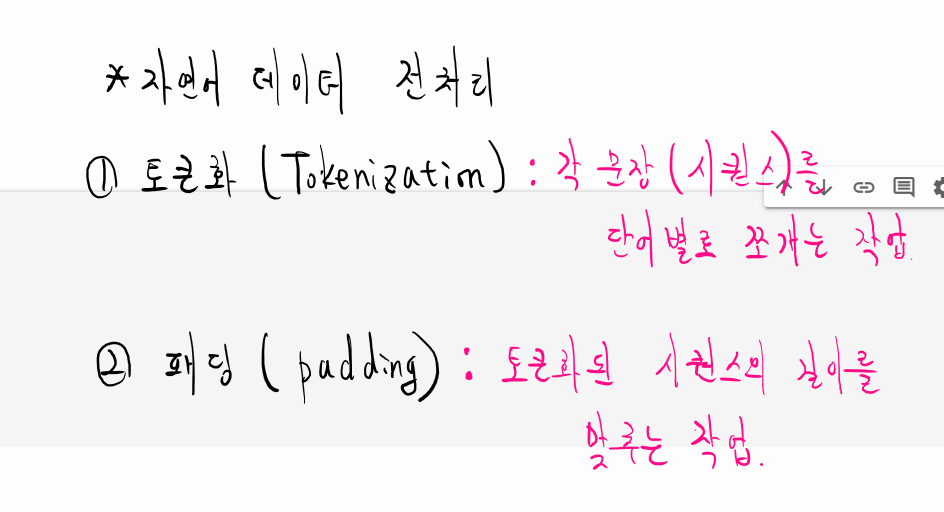 * 자연어 데이터 전처리
① 토큰화 (Tokenization) : 각 문장(시퀀스)를
단어별로 쪼개는 작업.
② 패딩 ( padding) : 토큰화된 시퀀스의 길이를
맞추는 작업.